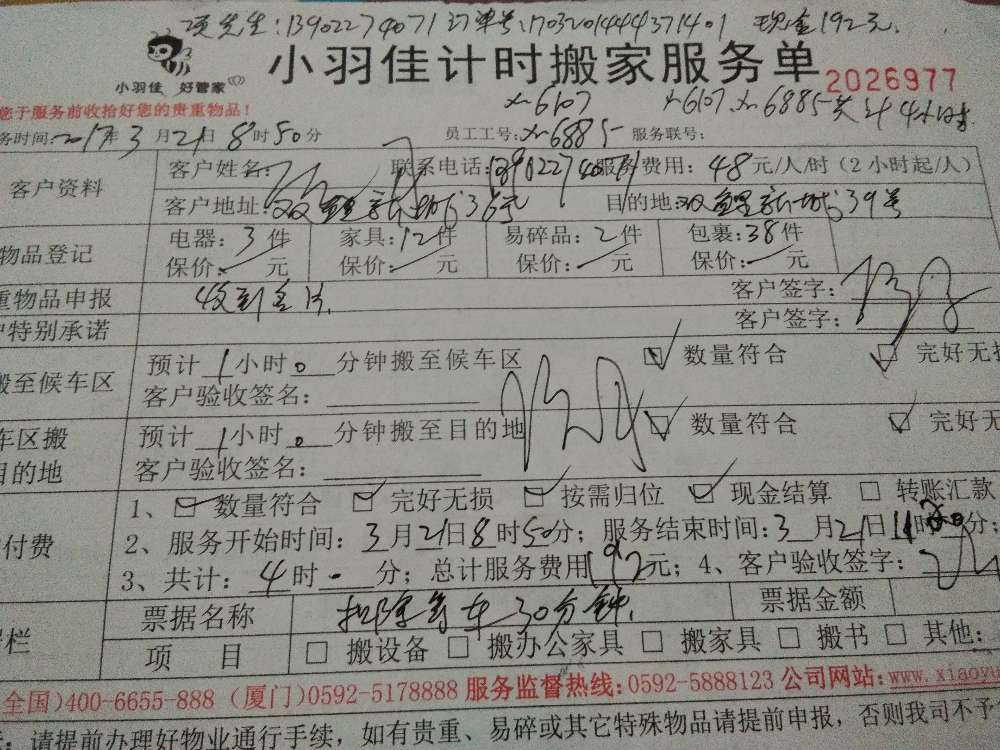 项先生:13902274071 订单号:1703201444371401 现金192元.
小羽佳 好管家
小羽佳计时搬家服务单 2026977
您于服务前收拾好您的贵重物品!
xm6107 xm6107.xm6885共计4小时
务时间:2017年3月21日8时50分 员工工号:xm6885 服务联号:
客户资料 客户姓名: 联系电话:13902274071 服务费用:48元/人/时(2小时起/人)
客户地址: 36号 目的地: 39号
物品登记 电器:3件 家具:12件 易碎品:2件 包裹:38件
保价: 元 保价: 元 保价: 元 保价: 元
重物品申报 收到名片. 客户签字:
户特别承诺 客户签字:
搬至候车区 预计1小时0分钟搬至候车区 数量符合 完好无损
客户验收签名:
车区搬 预计1小时0分钟搬至目的地 数量符合 完好无
目的地 客户验收签名:
1、数量符合 完好无损 按需归位 现金结算 转账汇款
付费 2、服务开始时间:3月21日8时50分;服务结束时间:3月21日11时20分;
3、共计:4时 分;总计服务费用192元;4、客户验收签字:
票据名称 扣除等车30分钟. 票据金额
栏 项 目 搬设备 搬办公家具 搬家具 搬书 其他:
全国)400-6655-888 (厦门)0592-5178888 服务监督热线:0592-5888123 公司网站:www.xiaoyu
:请提前办理好物业通行手续,如有贵重、易碎或其它特殊物品请提前申报,否则我司不予